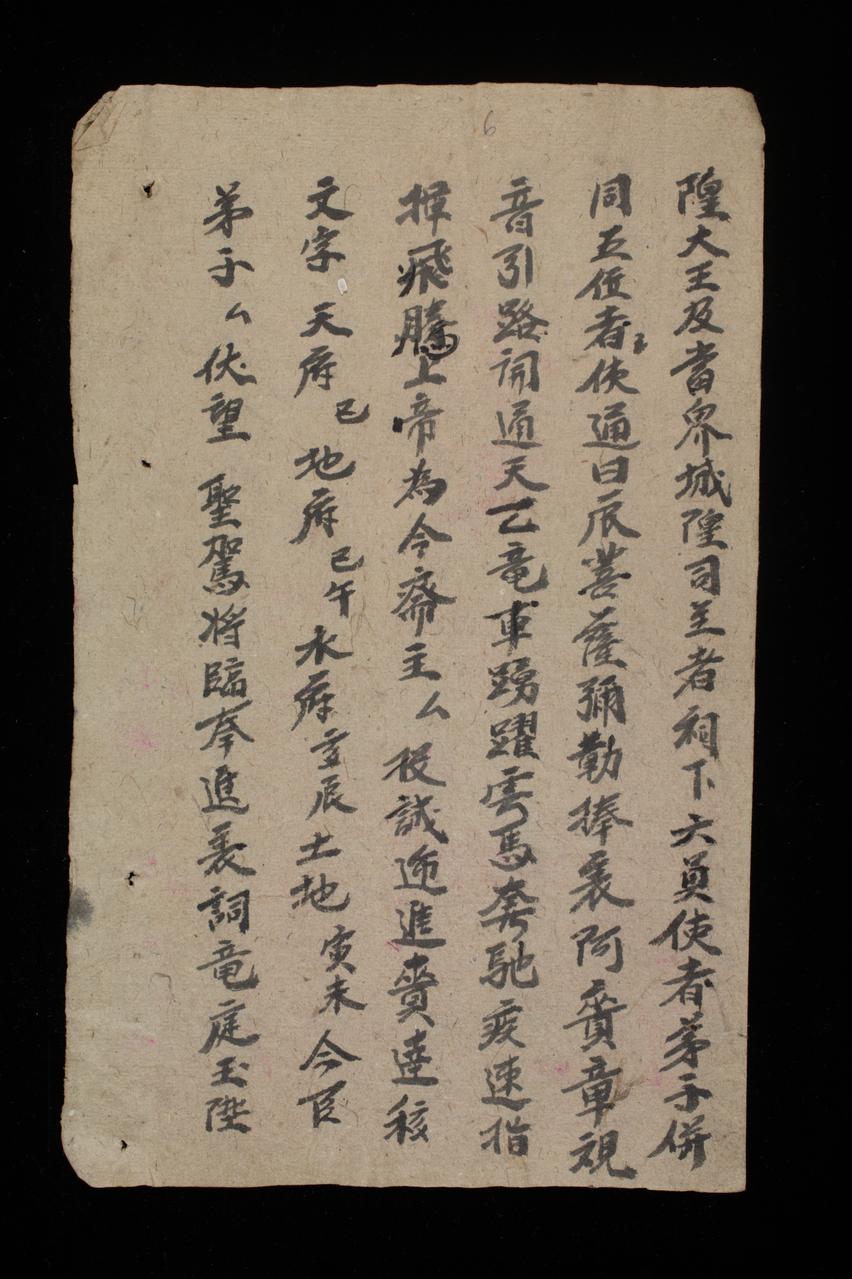 6
隍大王及當界城隍司主者祠下六員使者弟子併
同五位者使通曰辰菩薩彌勒捧表阿賫章視
音引路詞通天乙竜車踴躍雲馬奔馳疾速指
揮飛騰上帝為今齋主厶投誠迎進賫達
文字 天府 已 地府 已午 水府 玄辰 土地 寅未 今臣
弟子厶伏望 聖駕將臨奉進表詞竜庭玉陛